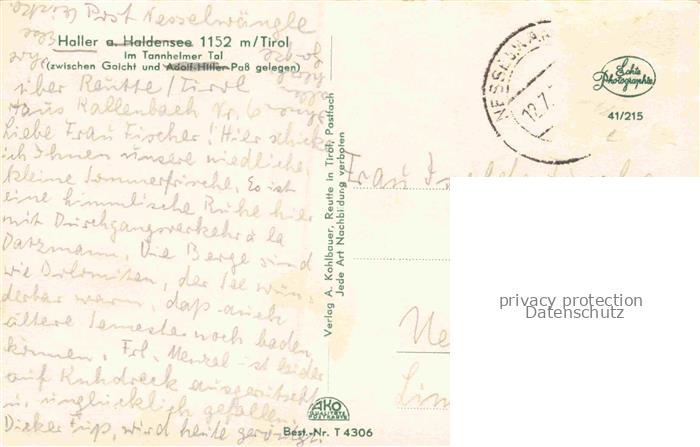 Post Nesselwängle
Haller a. Haldensee 1152 m/Tirol
Im Tannheimer Tal
(zwischen Gaicht und Adolf-Hitler-Paß gelegen)
über Reutte/Tirol
Haus Kallenbach Nr. 6
Liebe Frau Fischer! Hier schicke
ich Ihnen unsere niedliche
kleine Sommerfrische. Es ist
eine himmlische Ruhe hier
mit Durchgangsverkehr à la
Datzmann. Die Berge sind
wie Dolomiten, der See wun-
derbar warm, daß auch
ältere Semester noch baden
können. Frl. Menzel ist leider
auf Kuhdreck ausgerutscht
u. unglücklich gefallen.
Dicker Fuß, wird heute
Verlag A. Kohlbauer, Reutte in Tirol, Postfach
Jede Art Nachbildung verboten
AKO
QUALITÄTS
POSTKARTE
Best.-Nr. T 4306
NESSELW
12.7.
Echte
Photographie
41/215
Frau
privacy protection
Datenschutz